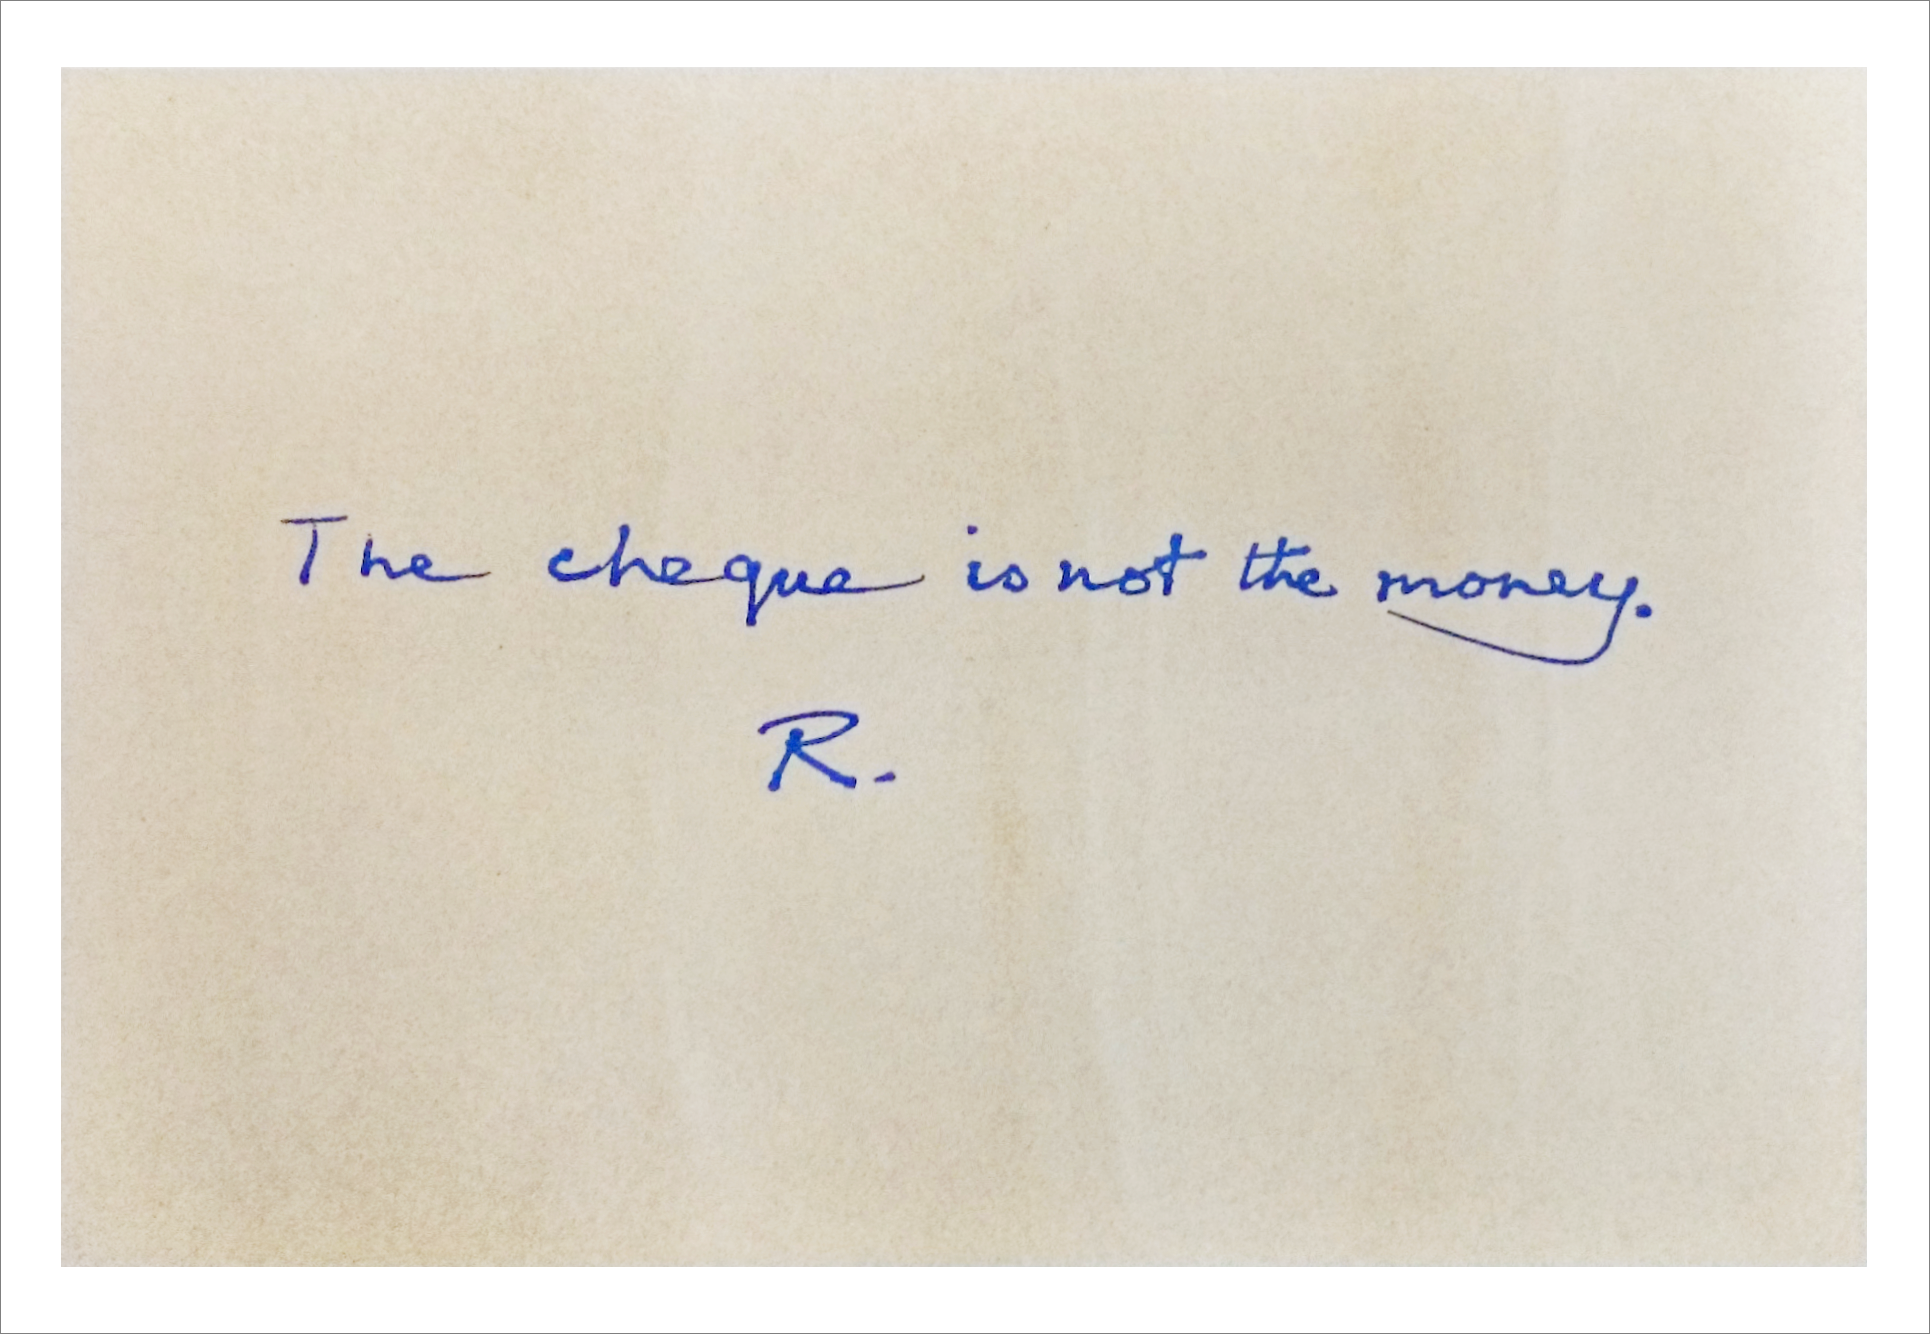 The cheque is not the money.
R.